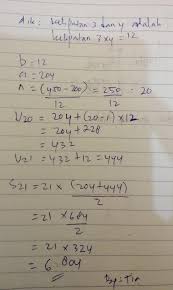 dik: kelipatan 3 dan 4 adalah
kelipatan 3x4 = 12
b = 12
a = 204
n = (450 - 200) = 250 = 20
12 12
U20 = 204 + (20-1) x 12
= 204 + 228
= 432
U21 = 432 + 12 = 444
S21 = 21 x (204 + 444)
2
= 21 x 684
2
= 21 x 324
= 6.804
By: Tia